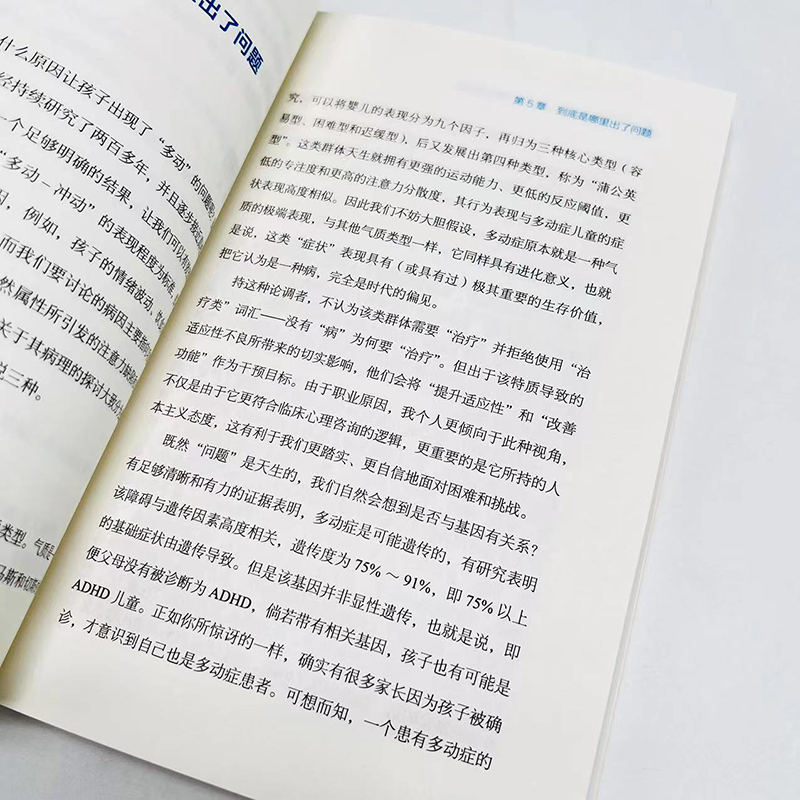 出了问题
什么原因让孩子出现了“多动”的问题
经持续研究了两百多年，并且逐
一个足够明确的结果，让我们可以
“多动－冲动”的表现程度为标准
因，例如，孩子的情绪波动、
而我们要讨论的病因主要
然属性所引发的注意力
关于其病理的探讨大
说三种。
类型。气质
马斯和
第5章 到底是哪里出了问题
究，可以将婴儿的表现分为九个因子，再归为三种核心类型（容
易型、困难型和迟缓型），后又发展出第四种类型，称为“蒲公英
型”。这类群体天生就拥有更强的运动能力、更低的反应阈值，更
低的专注度和更高的注意力分散度，其行为表现与多动症儿童的症
状表现高度相似。因此我们不妨大胆假设，多动症原本就是一种气
质的极端表现，与其他气质类型一样，它同样具有进化意义，也就
是说，这类“症状”表现具有（或具有过）极其重要的生存价值，
把它认为是一种病，完全是时代的偏见。
持这种论调者，不认为该类群体需要“治疗”并拒绝使用“治
疗类”词汇——没有“病”为何要“治疗”。但出于该特质导致的
适应性不良所带来的切实影响，他们会将“提升适应性”和“改善
功能”作为干预目标。由于职业原因，我个人更倾向于此种视角，
不仅是由于它更符合临床心理咨询的逻辑，更重要的是它所持的人
本主义态度，这有利于我们更踏实、更自信地面对困难和挑战。
既然“问题”是天生的，我们自然会想到是否与基因有关系？
有足够清晰和有力的证据表明，多动症是可能遗传的，有研究表明
该障碍与遗传因素高度相关，遗传度为 75%～91%，即 75% 以上
的基础症状由遗传导致。但是该基因并非显性遗传，也就是说，即
便父母没有被诊断为 ADHD，倘若带有相关基因，孩子也有可能是
ADHD 儿童。正如你所惊讶的一样，确实有很多家长因为孩子被确
诊，才意识到自己也是多动症患者。可想而知，一个患有多动症的